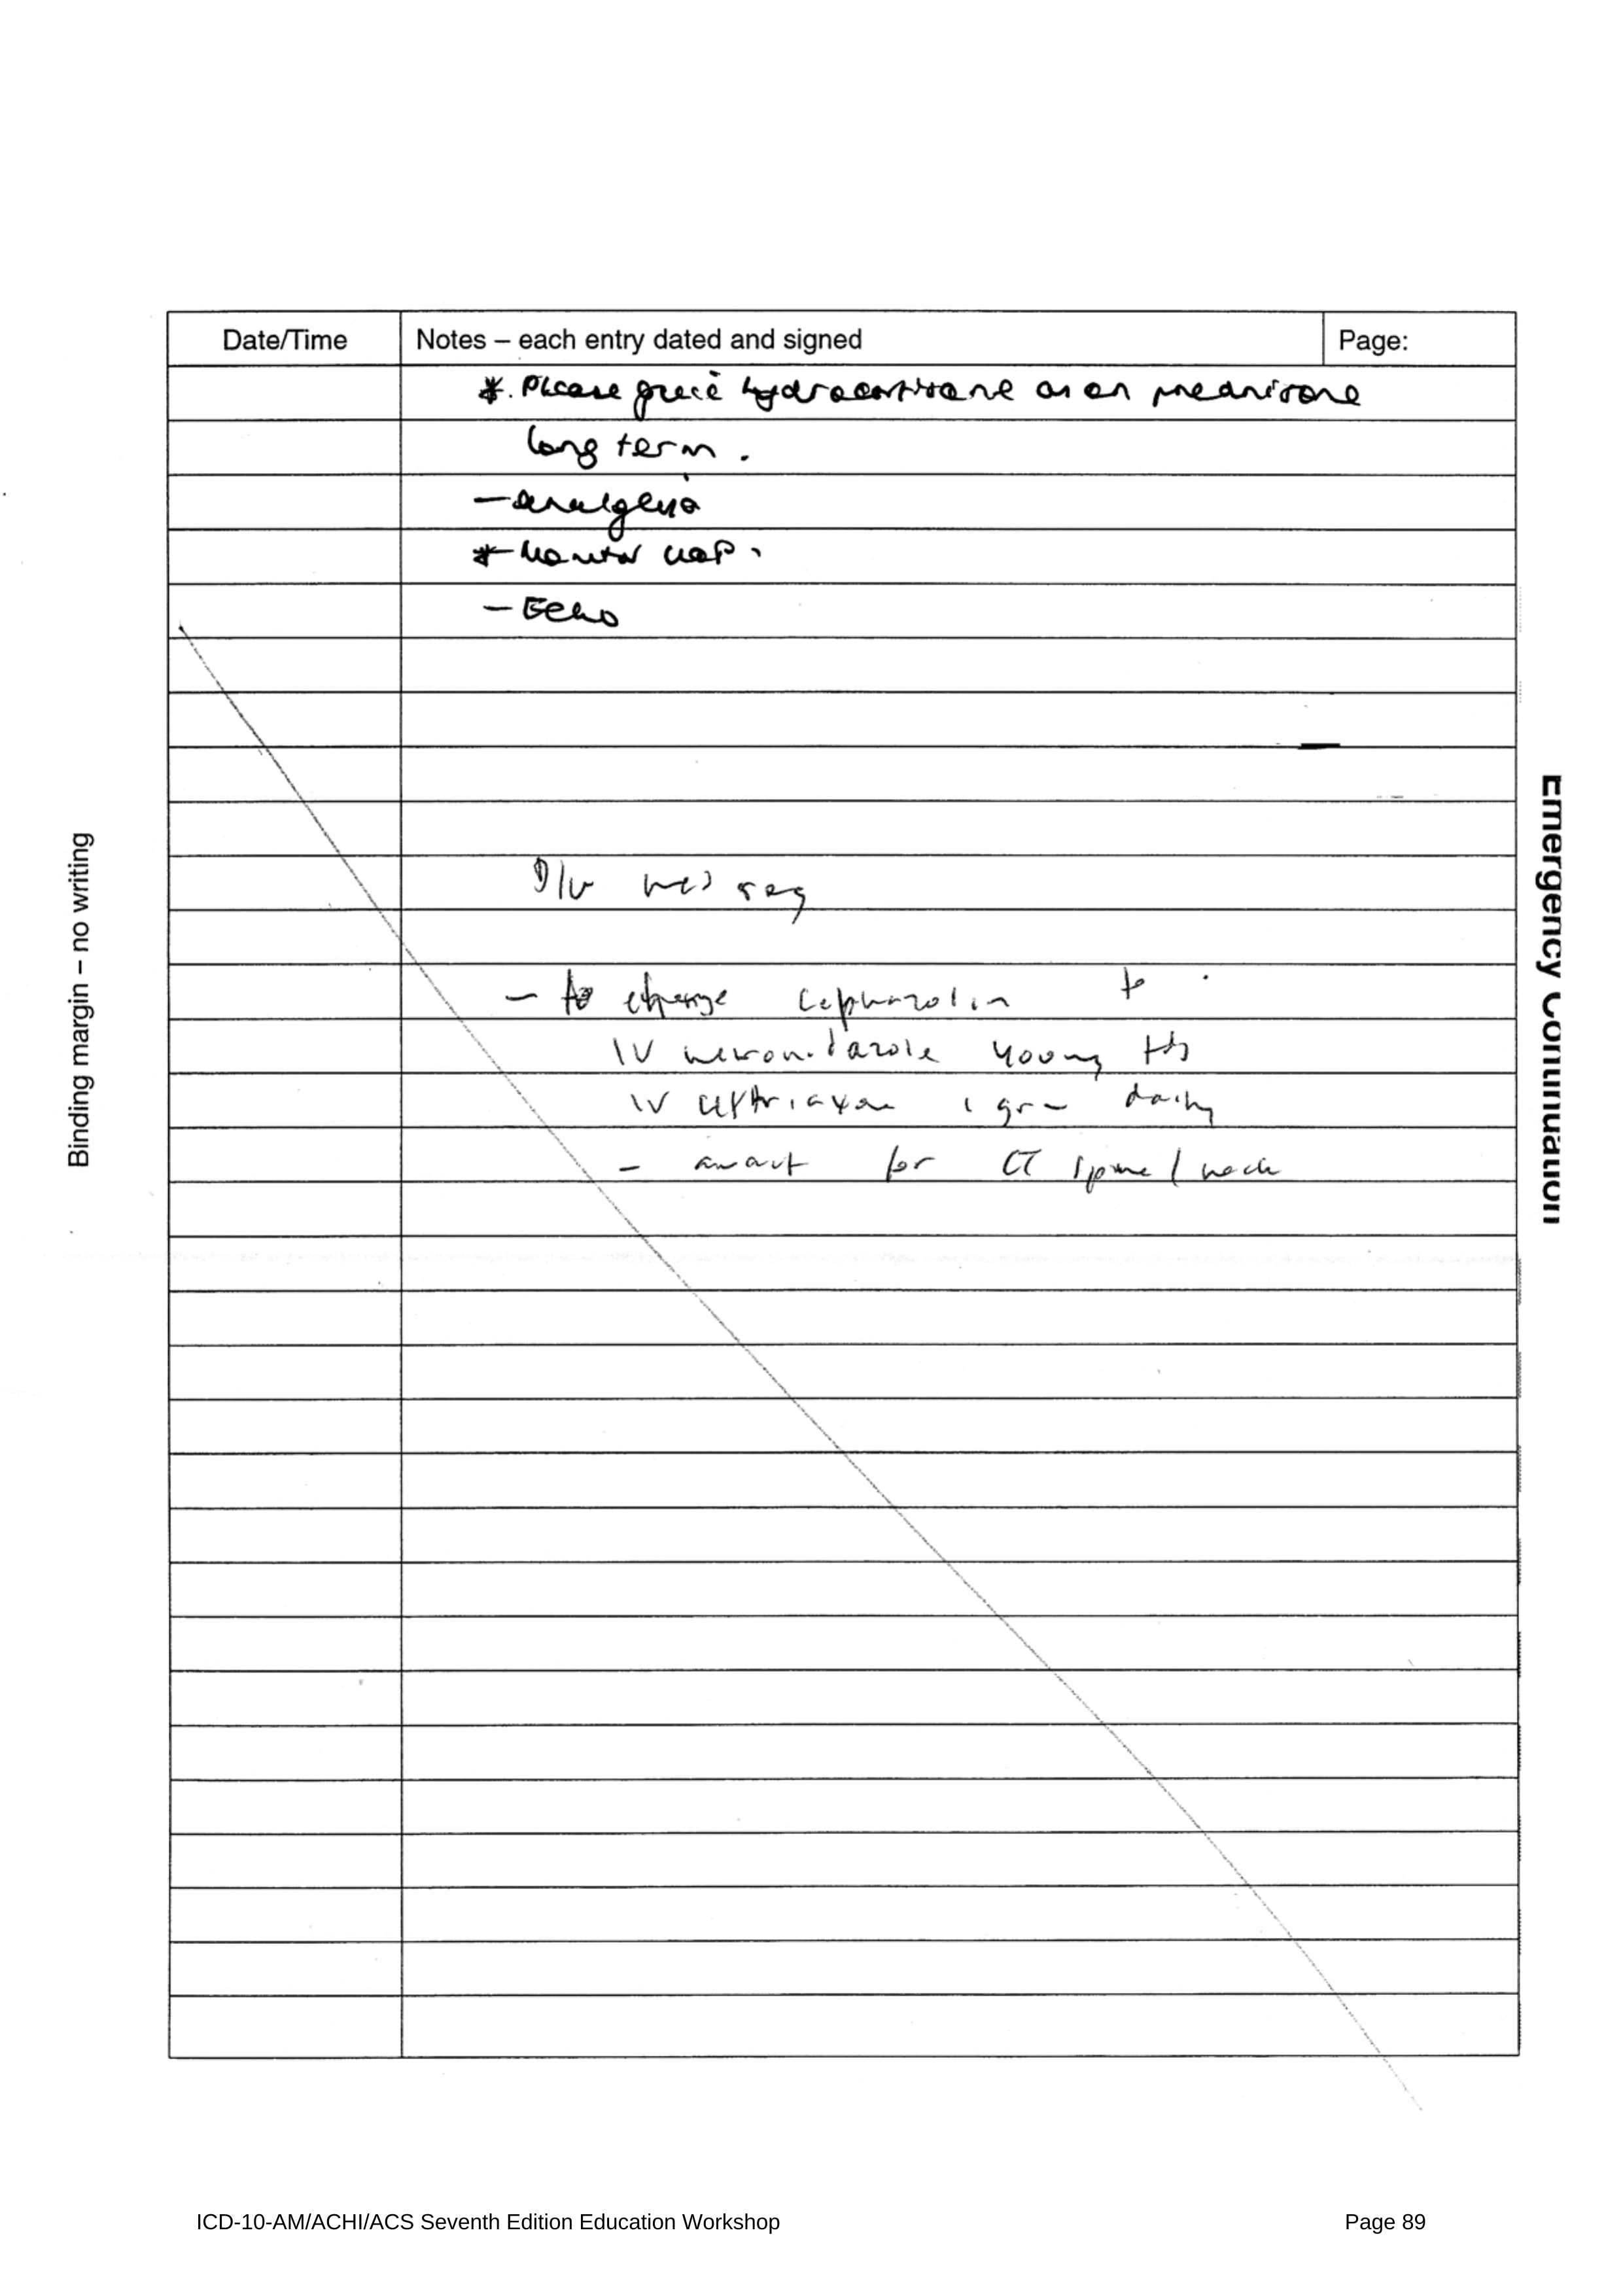 Date/Time Notes – each entry dated and signed Page:
*. Please give hydrocortisone as on prednisone
long term.
– analgesia
* Monitor UOP.
– Echo
D/W med reg
– to change cephazolin to
IV metronidazole 400mg tds
IV ceftriaxone 1 gram daily
– await for CT spine / neck
Binding margin – no writing
Emergency Continuation
ICD-10-AM/ACHI/ACS Seventh Edition Education Workshop Page 89